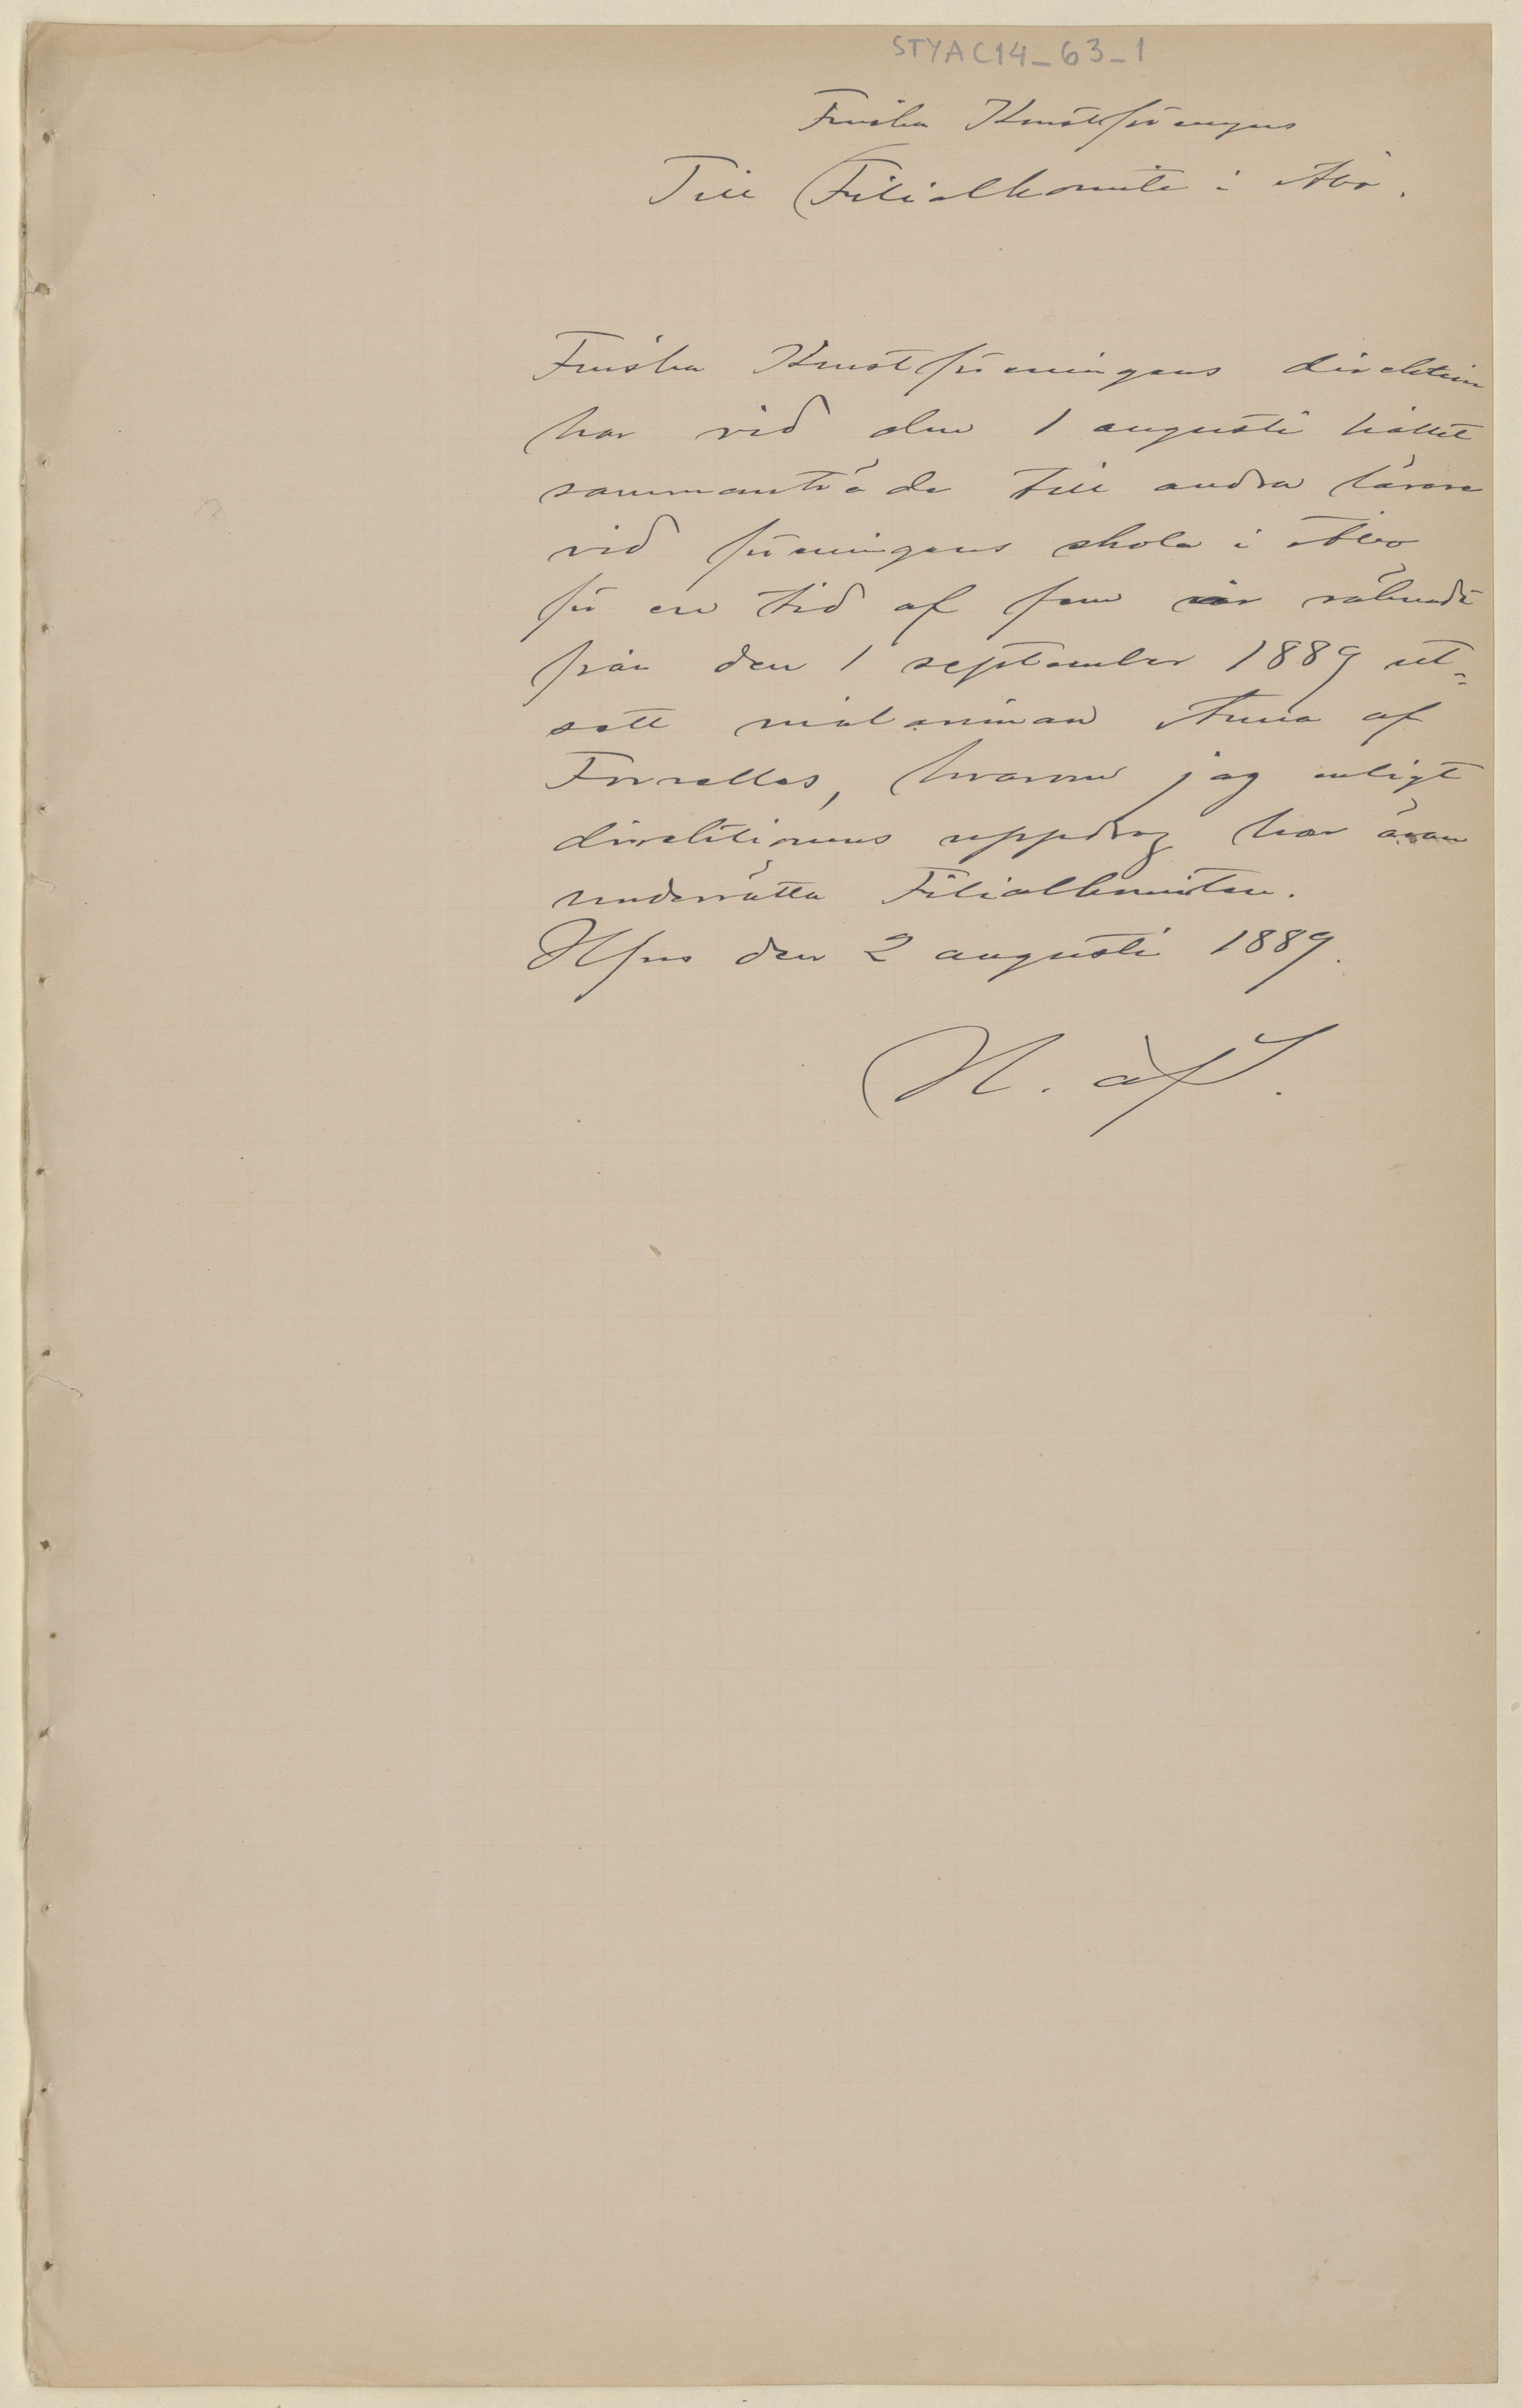 STYAC14_63_1
Finska Konstföreningens
Till Filialkomité i Åbo.
Finska Konstföreningens direktion
har vid den 1 augusti hållet
sammanträde till andra lärare
vid föreningens skola i Åbo
för en tid af fem år räknadt
från den 1 september 1889 ut-
sett målarinnan Anna af
Forselles, hvarom jag enligt
direktionens uppdrag har äran
underrätta Filialkomitén.
H:fors den 2 augusti 1889.